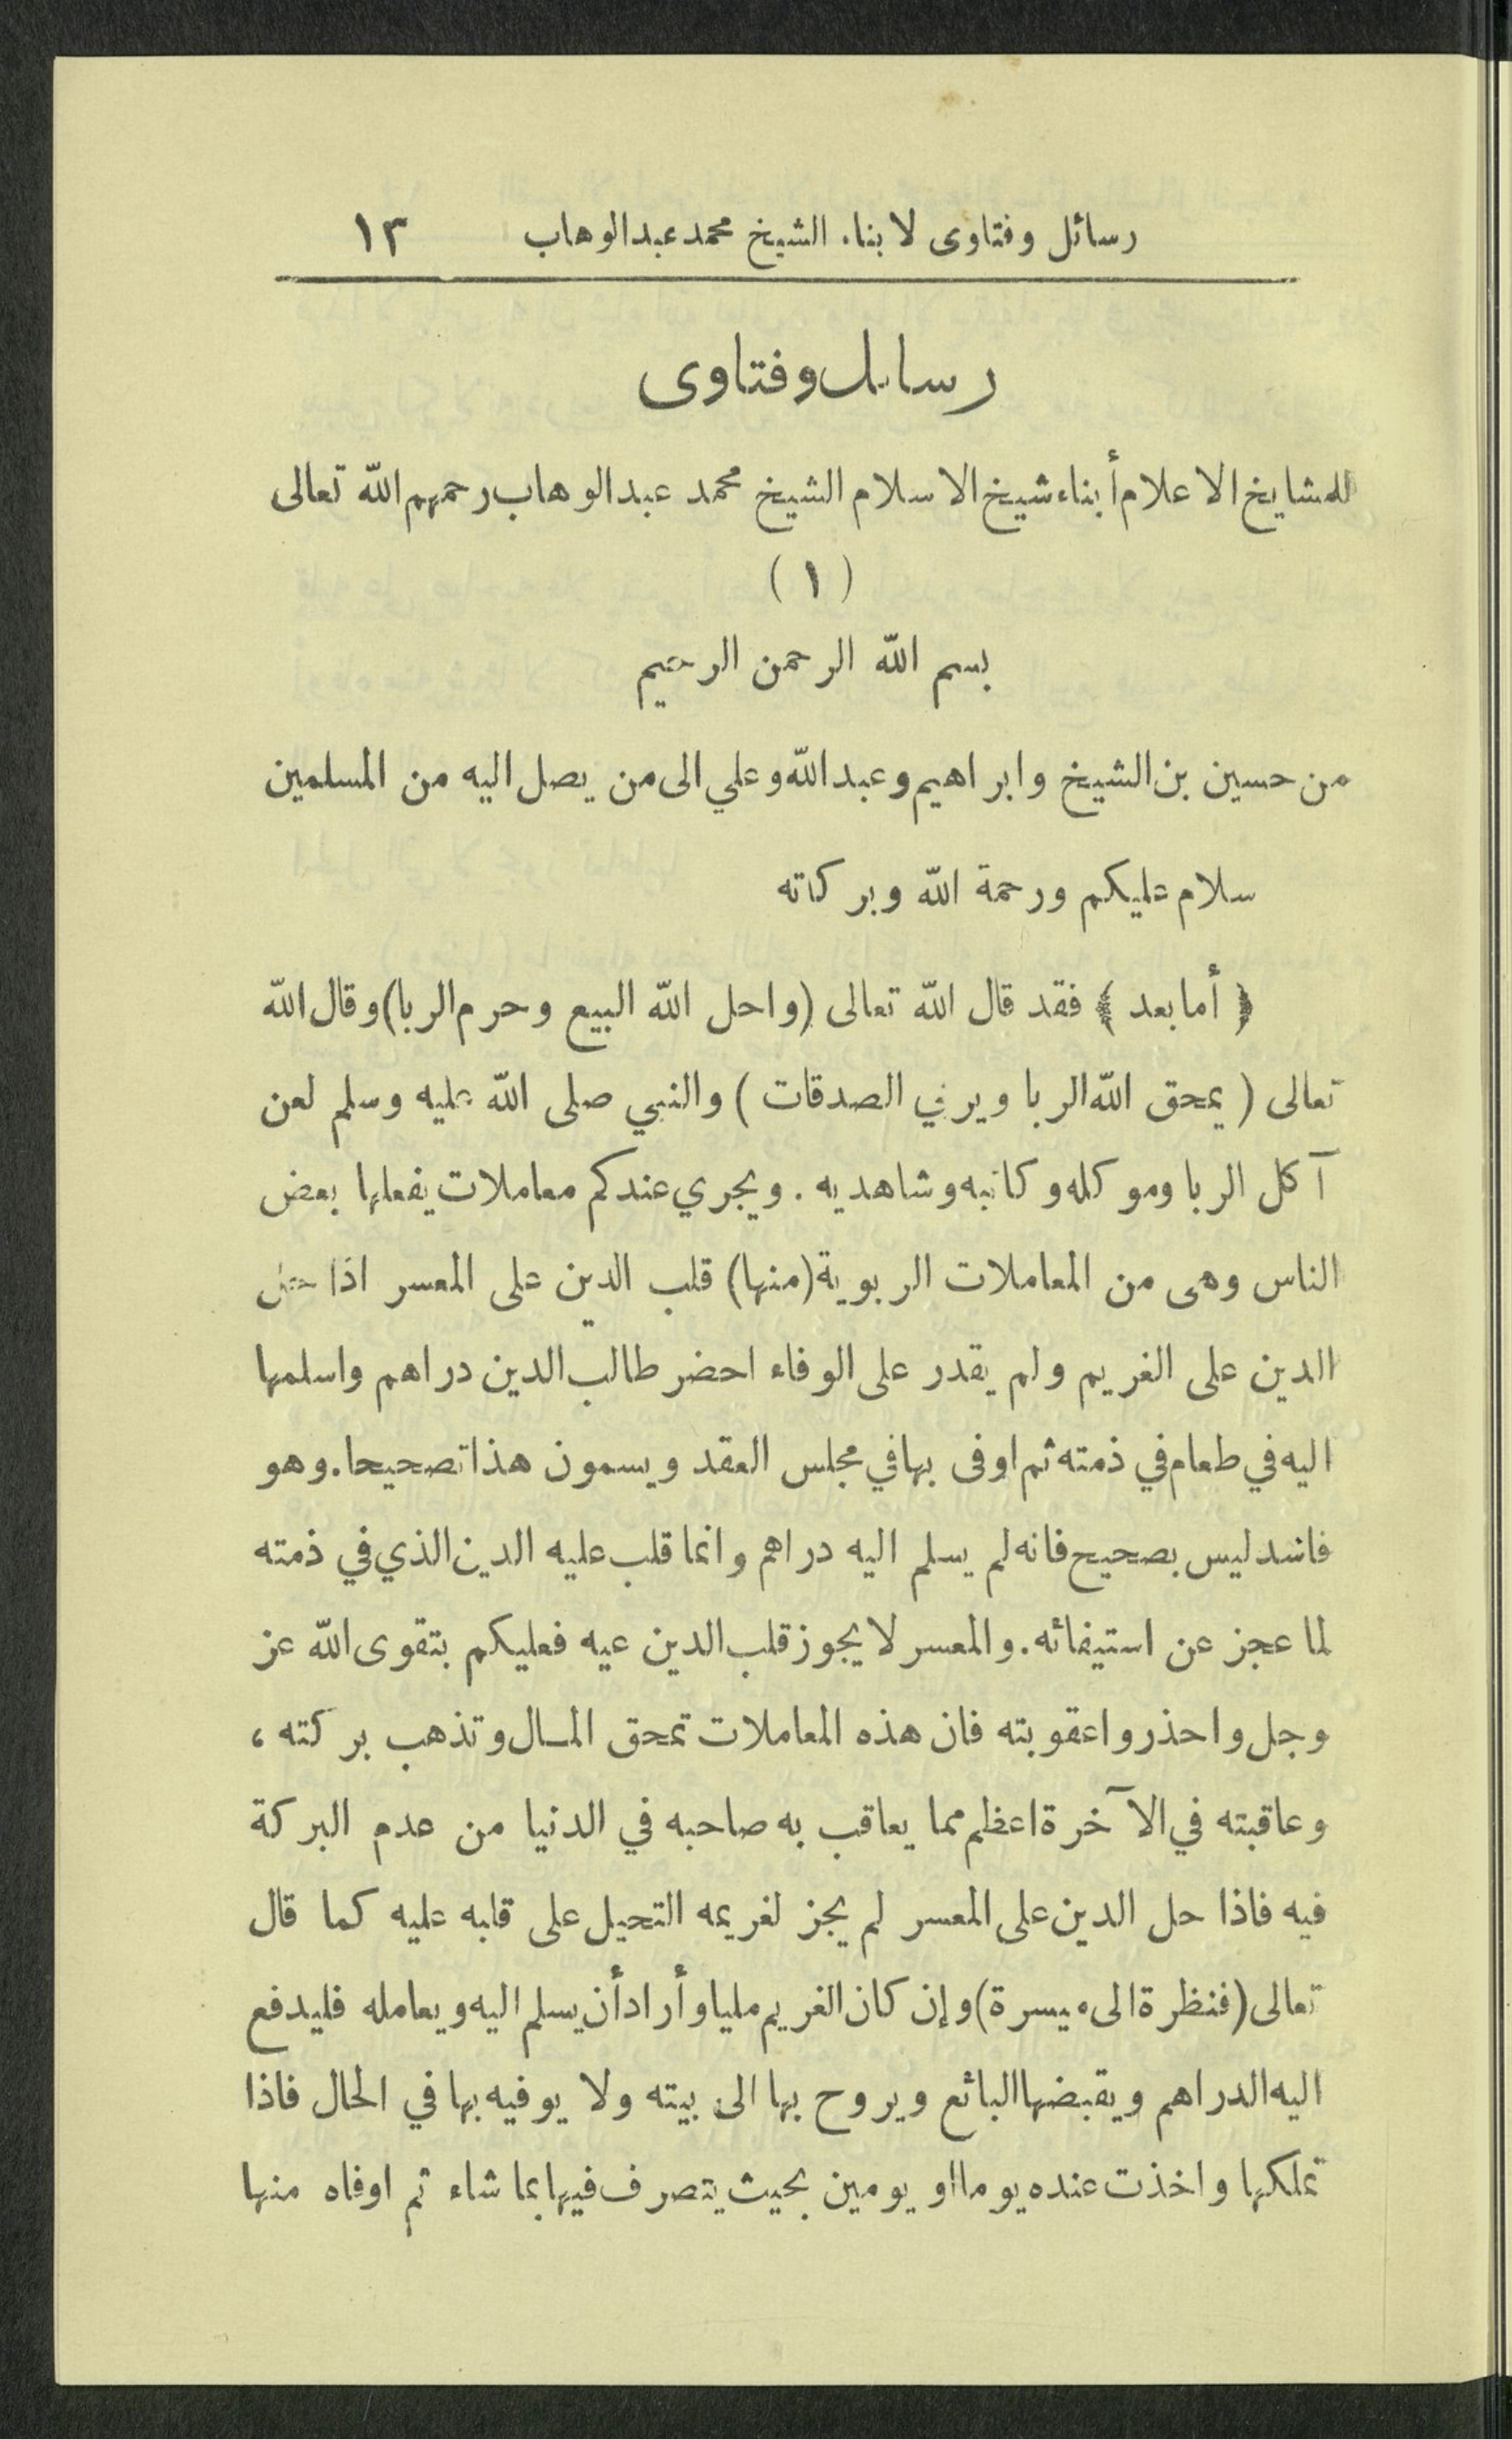 رسائل وفتاوى لابناء الشيخ محمد عبدالوهاب ١٣
رسائل وفتاوى
للمشايخ الاعلام أبناء شيخ الاسلام الشيخ محمد عبدالوهاب رحمهم الله تعالى
(١)
بسم الله الرحمن الرحيم
من حسين بن الشيخ وابراهيم وعبدالله وعلي الى من يصل اليه من المسلمين
سلام عليكم ورحمة الله وبركاته
﴿ أما بعد ﴾ فقد قال الله تعالى (واحل الله البيع وحرم الربا) وقال الله
تعالى ( يمحق الله الربا ويربي الصدقات ) والنبي صلى الله عليه وسلم لعن
آكل الربا وموكله وكاتبه وشاهديه . ويجري عندكم معاملات يفعلها بعض
الناس وهى من المعاملات الربوية (منها) قلب الدين على المعسر اذا حل
الدين على الغريم ولم يقدر على الوفاء احضر طالب الدين دراهم واسلمها
اليه في طعام في ذمته ثم اوفى بها في مجلس العقد ويسمون هذا تصحيحا. وهو
فاسد ليس بصحيح فانه لم يسلم اليه دراهم وانما قلب عليه الدين الذي في ذمته
لما عجز عن استيفائه. والمعسر لا يجوز قلب الدين عيه فعليكم بتقوى الله عز
وجل واحذروا عقوبته فان هذه المعاملات تمحق المال وتذهب بركته ،
وعاقبته في الآخرة اعظم مما يعاقب به صاحبه في الدنيا من عدم البركة
فيه فاذا حل الدين على المعسر لم يجز لغريمه التحيل على قلبه عليه كما قال
تعالى (فنظرة الى ميسرة) وإن كان الغريم مليا وأراد أن يسلم اليه ويعامله فليدفع
اليه الدراهم ويقبضها البائع ويروح بها الى بيته ولا يوفيه بها في الحال فاذا
تملكها واخذت عنده يوما او يومين بحيث يتصرف فيها بما شاء ثم اوفاه منها